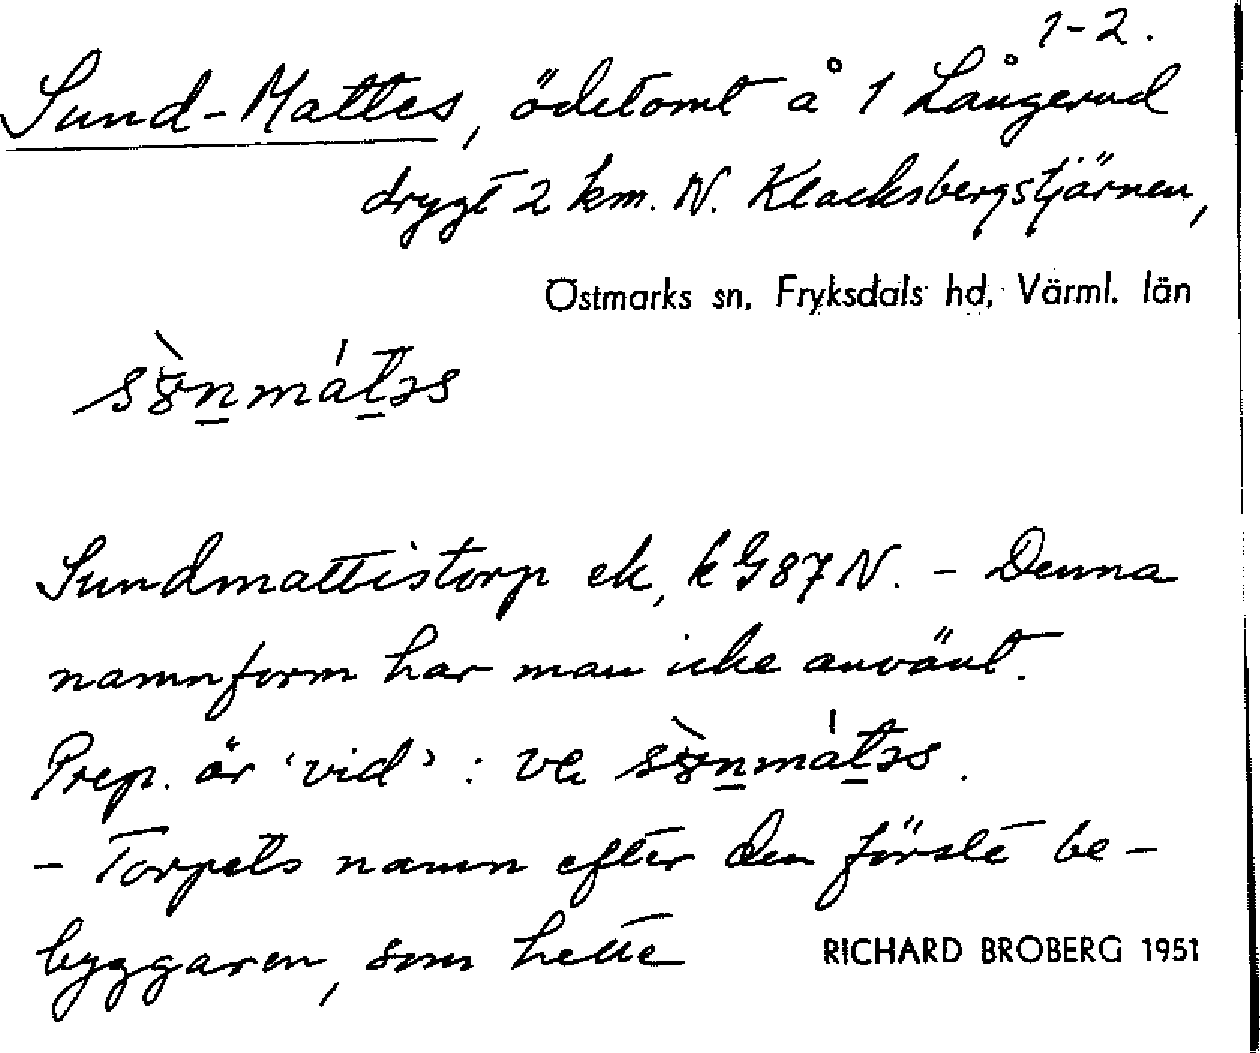 1-2.
Sund-Mattes, ödetomt å 1 Långerud
drygt 2 km. N. Klacksbergstjärnen,
Östmarks sn, Fryksdals hd, Värml. län
Sundmattistorp ek, k G87N. - Denna
namnform har man icke använt.
Prep. är 'vid' : ve
- Torpets namn efter den förste be-
byggaren, som hette
RICHARD BROBERG 1951